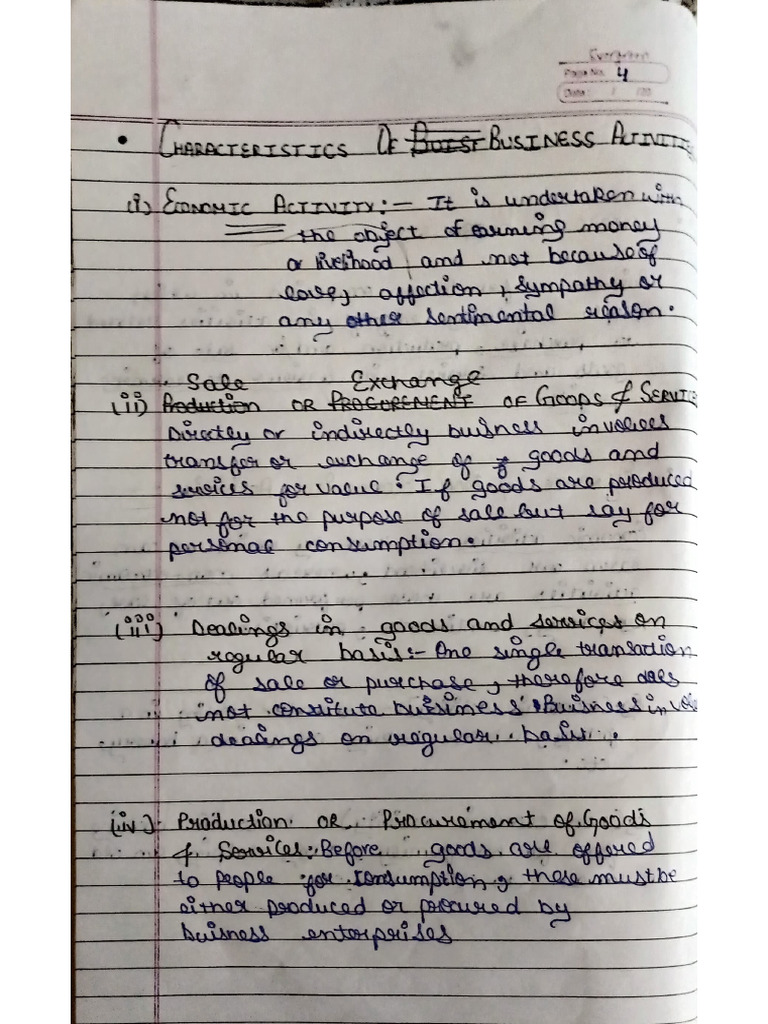 Evergreen
Page No. 4
Date: / /20
• CHARACTERISTICS OF BUSINESS ACTIVITI
(i) ECONOMIC ACTIVITY:- It is undertaken with
the object of earning money
or livelihood and not because of
love, affection, sympathy or
any other sentimental reason.
Sale Exchange
(ii) Production OR PROCUREMENT OF GOODS & SERVIC
Directly or indirectly buisness involves
transfer or exchange of goods and
services for value. If goods are produced
not for the purpose of sale but say for
personal consumption.
(iii) Dealings in goods and services on
regular basis:- One single transaction
of sale or purchase, therefore does
not constitute buisiness. Buisness involve
dealings on regular basis.
(iv) Production OR Procurement of Goods
& Services: Before goods are offered
to people for consumption, these must be
either produced or procured by
buisness enterprises